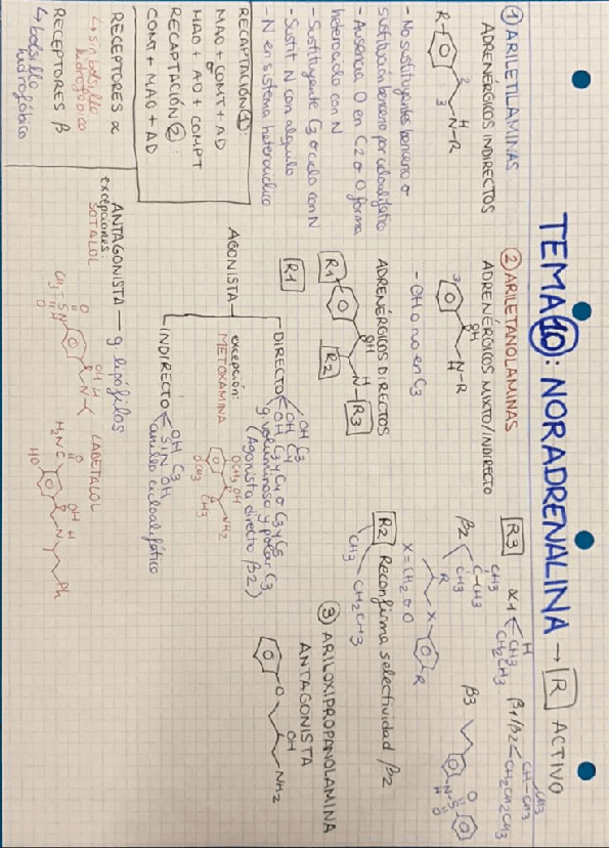 TEMA 10: NORADRENALINA → R ACTIVO
① ARILETILAMINAS
ADRENÉRGICOS INDIRECTOS
R
2
3
H
N-R
- No sustituyentes benceno o
sustitución benceno por cicloalifático
- Ausencia O en C2 o O forma
heterociclo con N
- Sustituyente C3 o ciclo con N
- Sustit N con alquilo
- N en sistema heterocíclico
RECAPTACIÓN ①:
MAO + COMT + AD
MAO + AD + COMPT
RECAPTACIÓN ②:
COMT + MAO + AD
RECEPTORES α
↳ sin bolsillo
hidrofóbico
RECEPTORES β
↳ bolsillo
hidrofóbico
② ARILETANOLAMINAS
ADRENÉRGICOS MIXTO/INDIRECTO
3
OH
H
N-R
- OH o no en C3
ADRENÉRGICOS DIRECTOS
R1
OH
R2
H
N-R3
R1
AGONISTA
DIRECTO
OH C3
OH C4
OH C3 y C4 o C3 y C5
g voluminoso y polar C3
(Agonista directo β2)
excepción:
METOXAMINA
OCH3
OH
NH2
CH3
OCH3
INDIRECTO
OH C3
SIN OH
anillo cicloalifático
ANTAGONISTA — g lipófilos
excepciones:
SOTALOL
CH3-S-N
O
O
H
OH H
N
LABETALOL
H2NC
O
HO
OH H
N
Ph
R3
α1
H
CH3
CH2CH3
β1/β2
CH-CH3
CH3
CH2CH2CH3
β2
CH3
C-CH3
CH3
R
X
R
X = CH2 o O
β3
N-S
H
O
O
R2 Reconfirma selectividad β2
CH3
CH2CH3
③ ARILOXIPROPANOLAMINA
ANTAGONISTA
O
OH
NH2